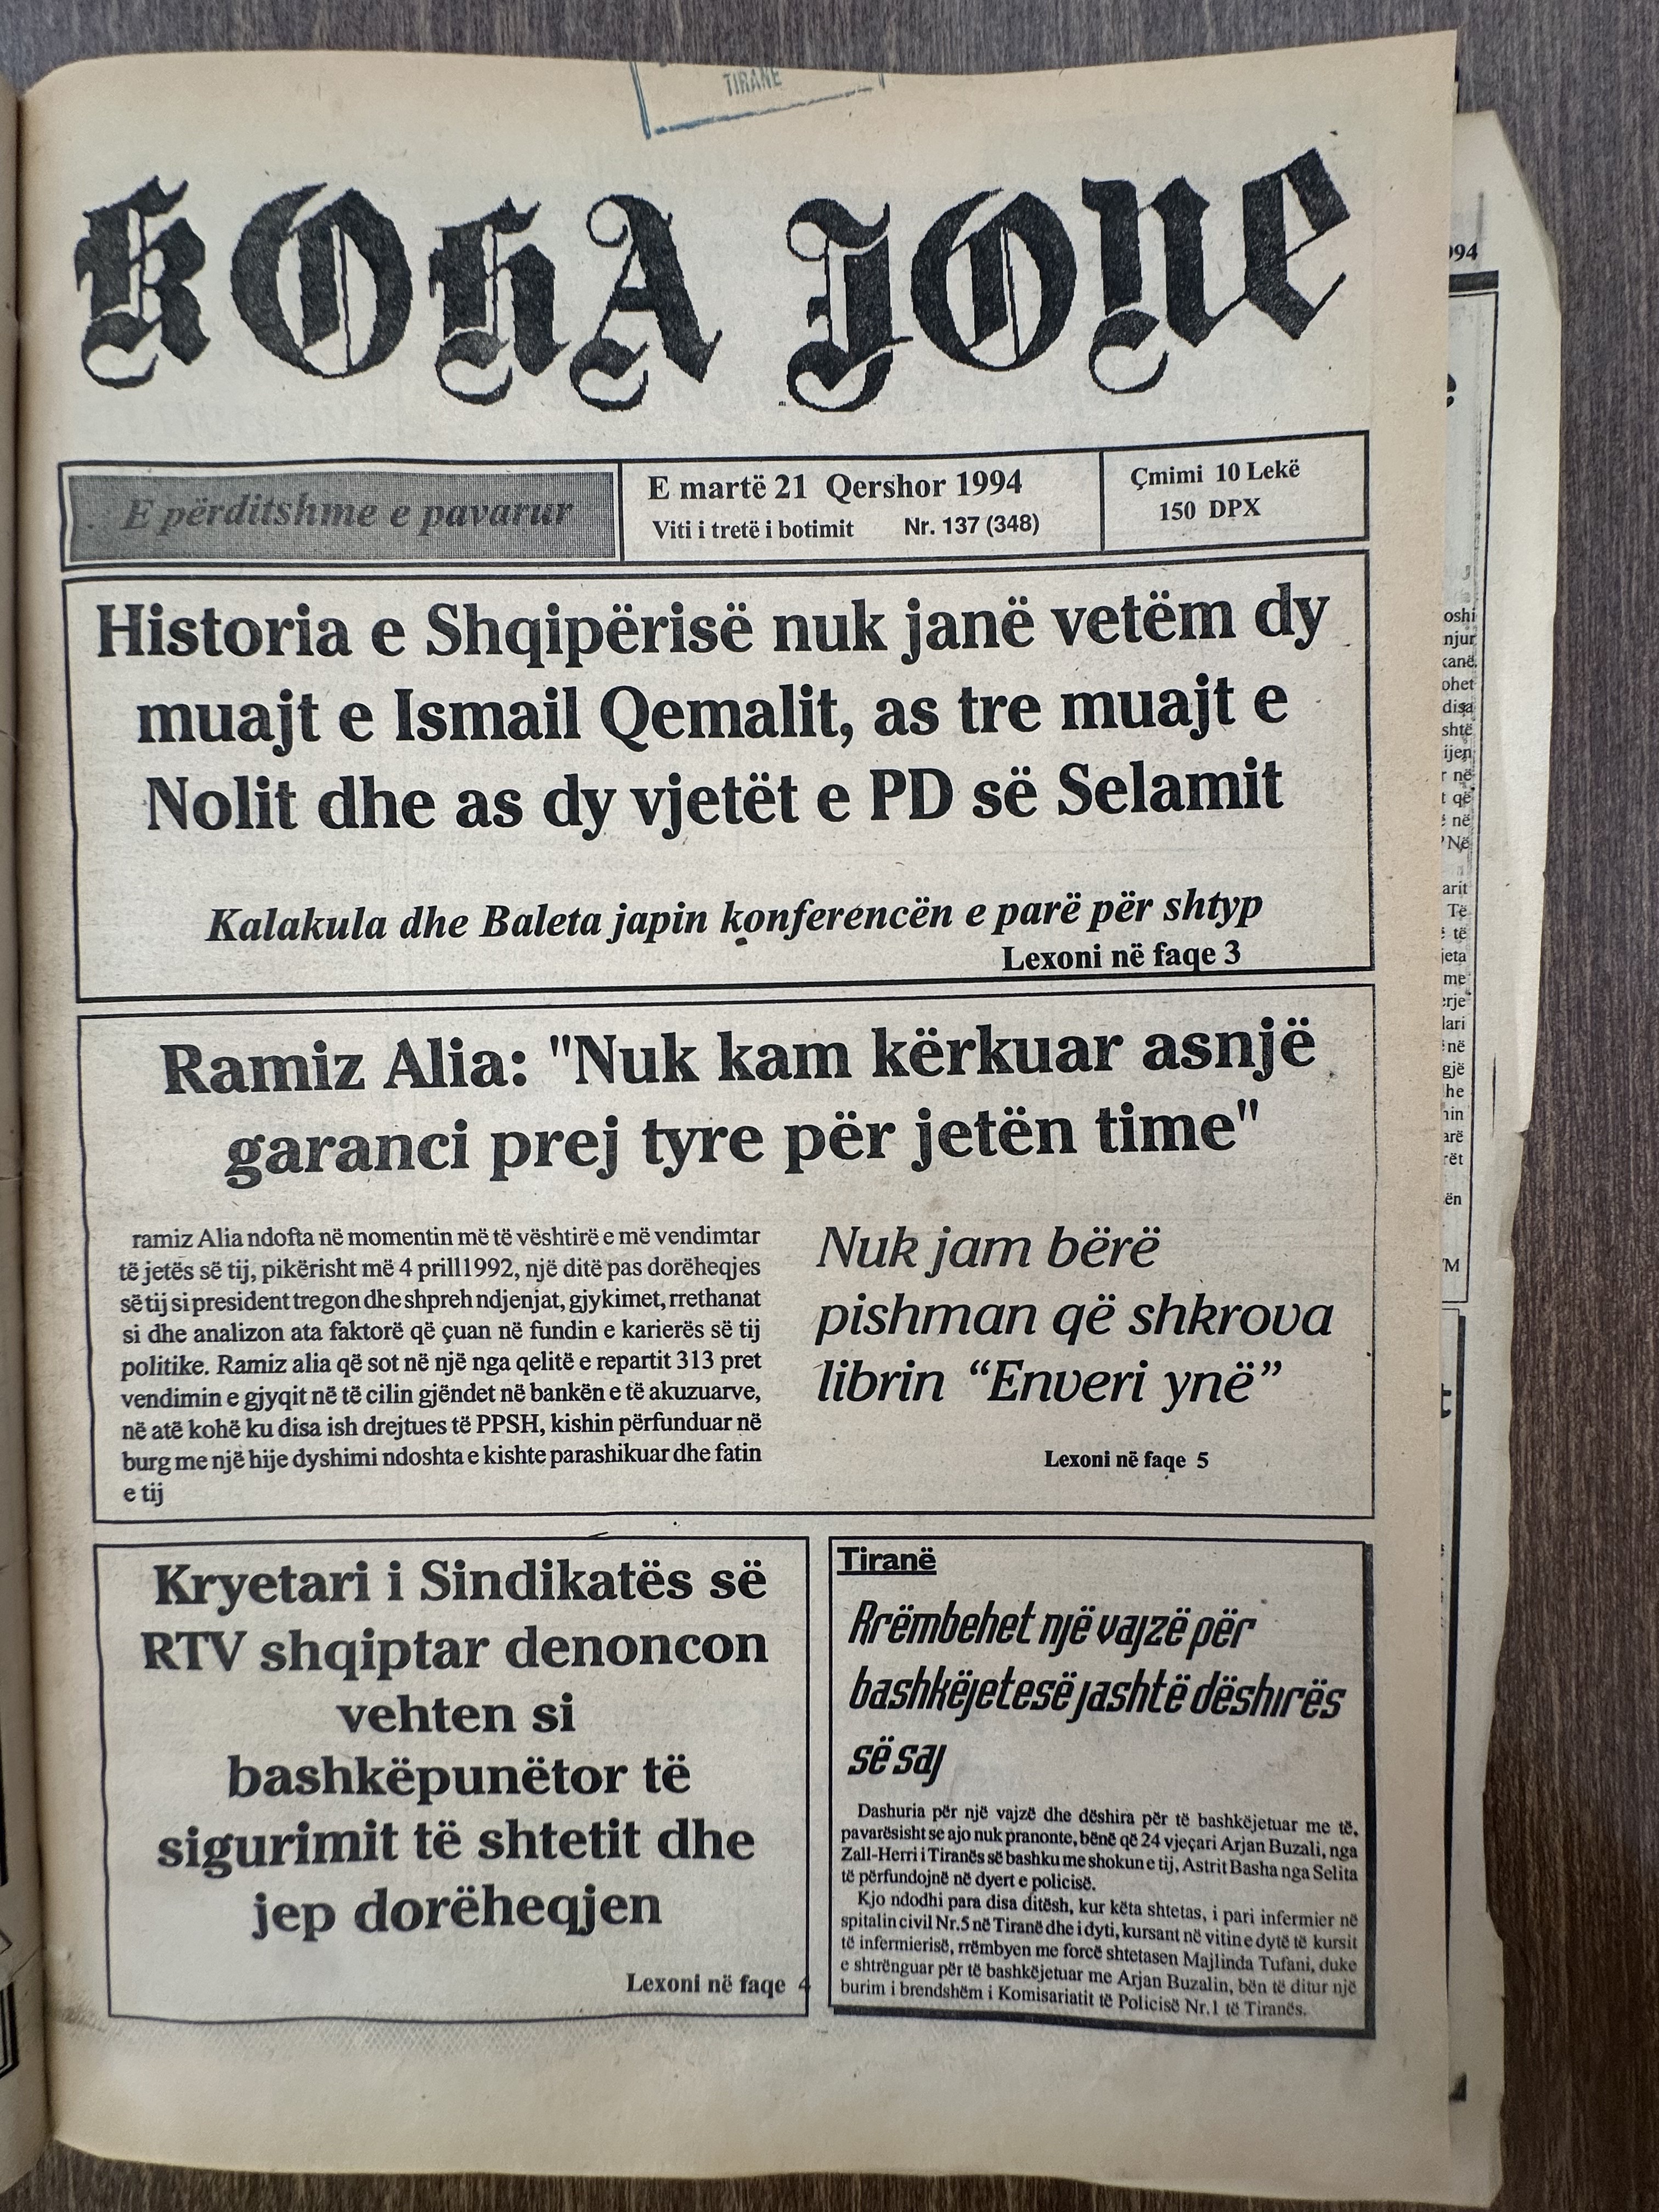 TIRANË
KOHA JONE
E përditshme e pavarur
E martë 21 Qershor 1994
Viti i tretë i botimit Nr. 137 (348)
Çmimi 10 Lekë
150 DPX
Historia e Shqipërisë nuk janë vetëm dy
muajt e Ismail Qemalit, as tre muajt e
Nolit dhe as dy vjetët e PD së Selamit
Kalakula dhe Baleta japin konferencën e parë për shtyp
Lexoni në faqe 3
Ramiz Alia: "Nuk kam kërkuar asnjë
garanci prej tyre për jetën time"
ramiz Alia ndofta në momentin më të vështirë e më vendimtar
të jetës së tij, pikërisht më 4 prill1992, një ditë pas dorëheqjes
së tij si president tregon dhe shpreh ndjenjat, gjykimet, rrethanat
si dhe analizon ata faktorë që çuan në fundin e karierës së tij
politike. Ramiz alia që sot në një nga qelitë e repartit 313 pret
vendimin e gjyqit në të cilin gjëndet në bankën e të akuzuarve,
në atë kohë ku disa ish drejtues të PPSH, kishin përfunduar në
burg me një hije dyshimi ndoshta e kishte parashikuar dhe fatin
e tij
Nuk jam bërë
pishman që shkrova
librin “Enveri ynë”
Lexoni në faqe 5
Kryetari i Sindikatës së
RTV shqiptar denoncon
vehten si
bashkëpunëtor të
sigurimit të shtetit dhe
jep dorëheqjen
Lexoni në faqe 4
Tiranë
Rrëmbehet një vajzë për
bashkëjetesë jashtë dëshirës
së saj
Dashuria për një vajzë dhe dëshira për të bashkëjetuar me të,
pavarësisht se ajo nuk pranonte, bënë që 24 vjeçari Arjan Buzali, nga
Zall-Herri i Tiranës së bashku me shokun e tij, Astrit Basha nga Selita
të përfundojnë në dyert e policisë.
Kjo ndodhi para disa ditësh, kur këta shtetas, i pari infermier në
spitalin civil Nr.5 në Tiranë dhe i dyti, kursant në vitin e dytë të kursit
të infermierisë, rrëmbyen me forcë shtetasen Majlinda Tufani, duke
e shtrënguar për të bashkëjetuar me Arjan Buzalin, bën të ditur një
burim i brendshëm i Komisariatit të Policisë Nr.1 të Tiranës.